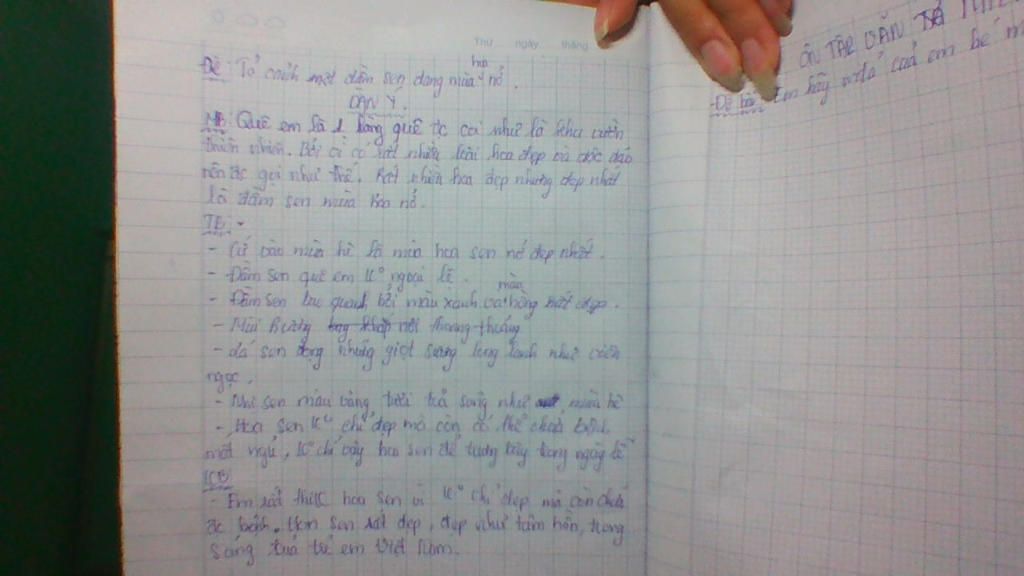 Thứ ngày tháng
Đề: Tả cảnh một đầm sen đang mùa hoa nở.
DÀN Ý.
MB: Quê em là 1 làng quê đc coi như là khu vườn
thiên nhiên. Bởi vì có rất nhiều loài hoa đẹp và độc đáo
nên đc gọi như thế. Rất nhiều hoa đẹp nhưng đẹp nhất
là đầm sen mùa hoa nở.
TB:
- Cứ vào mùa hè là mùa hoa sen nở đẹp nhất.
- Đầm sen quê em K° ngoại lệ.
- Đầm sen bao quanh bởi màu xanh và màu hồng rất đẹp.
- Mùi hương thoang thoảng
- lá sen đọng những giọt sương long lanh như viên
ngọc.
- Nhị sen màu vàng tươi toả sáng như mùa hè
- Hoa sen K° chỉ đẹp mà còn có thể chữa bệnh
mất ngủ, K° chỉ vậy hoa sen để trưng bày trong ngày lễ
KB
- Em rất thích hoa sen vì K° chỉ đẹp mà còn chữa
đc bệnh. Hoa sen rất đẹp, đẹp như tâm hồn, trong
sáng của trẻ em Việt Nam.
ÔN TẬP VĂN TẢ
- Đề bài: Em hãy tả em bé